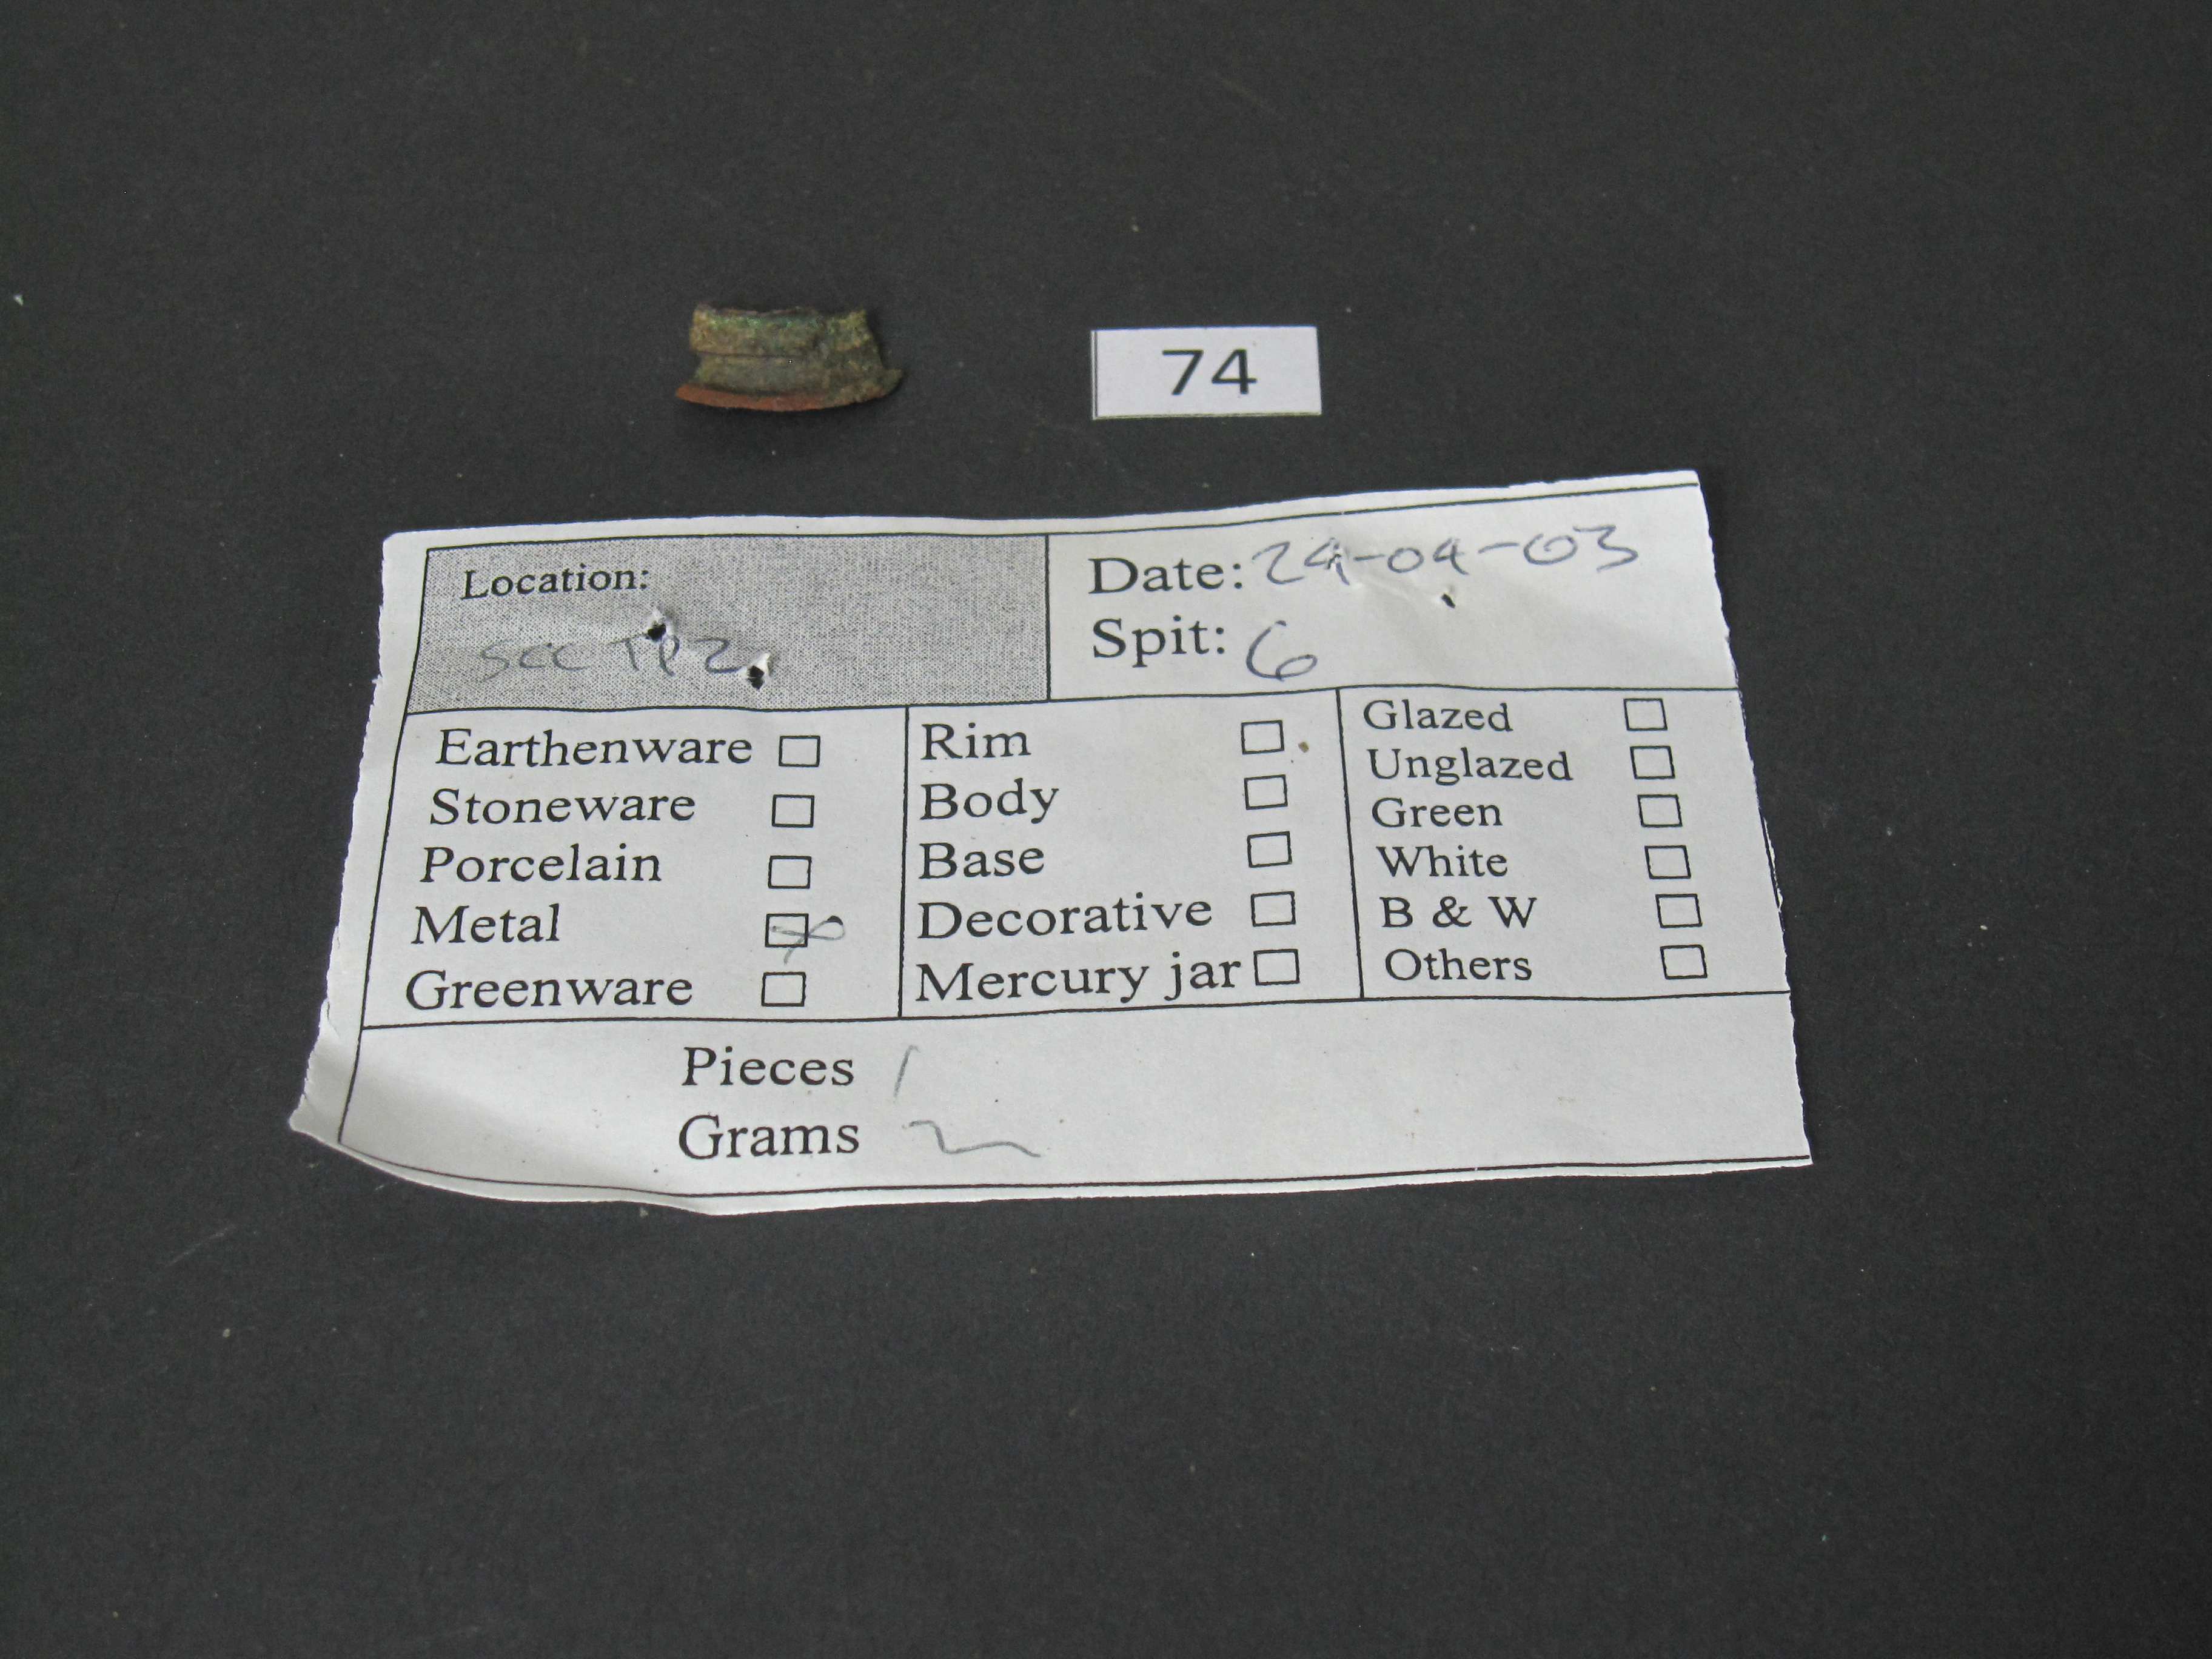 74
Location:
SCC TP2
Date: 24-04-03
Spit: 6
Earthenware
Stoneware
Porcelain
Metal
Greenware
Rim
Body
Base
Decorative
Mercury jar
Glazed
Unglazed
Green
White
B & W
Others
Pieces 1
Grams 2